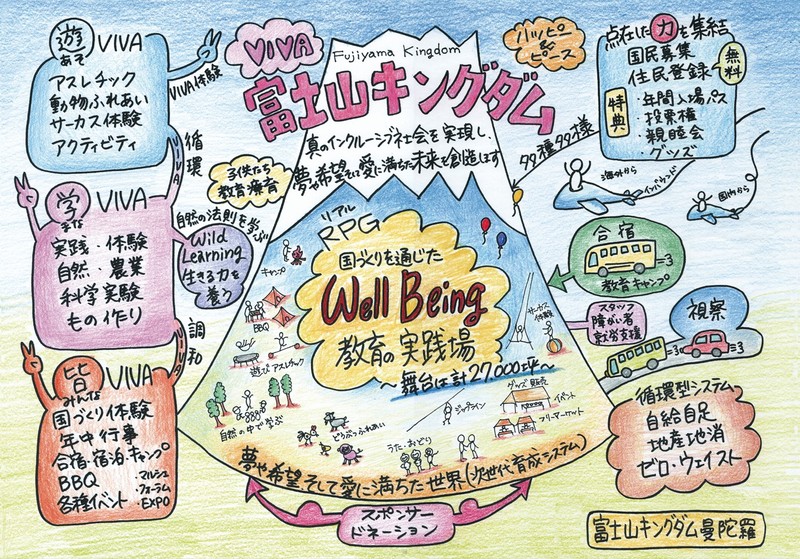 遊
あそ
VIVA
アスレチック
動物ふれあい
サーカス体験
アクティビティ
VIVA体験
循環
VIVA
Fujiyama Kingdom
富士山キングダム
真のインクルーシブ社会を実現し、
夢や希望そして愛に満ちた未来を創造します
ハッピー
&
ピース
点在した力を集結
国民募集
住民登録
無料
特典
・年間入場パス
・投票権
・親睦会
・グッズ
多種多様
海外から
インバウンド
国内から
子供たち
教育療育
学
まな
VIVA
実践・体験
自然・農業
科学実験
もの作り
自然の法則を学び
Wild
Learning
生きる力を
養う
調和
リアル
RPG
国づくりを通じた
Well Being
教育の実践場
〜舞台は計27,000坪〜
キャンプ
BBQ
遊び アスレチック
自然の中で学ぶ
どうぶつふれあい
うた・おどり
ジップライン
サーカス
体験
グッズ販売
イベント
フリーマーケット
夢や希望そして愛に満ちた世界(次世代育成システム)
合宿
教育キャンプ
スタッフ
障がい者
就労支援
視察
皆
みんな
VIVA
国づくり体験
年中行事
合宿・宿泊・キャンプ
BBQ
各種イベント
・マルシェ
・フォーラム
・EXPO
循環型システム
自給自足
地産地消
ゼロ・ウェイスト
スポンサー
ドネーション
富士山キングダム曼陀羅